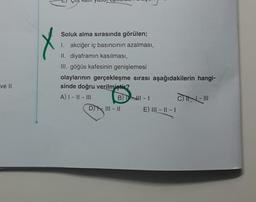 Soluk alma sırasında görülen;
I. akciğer iç basıncının azalması,
II. diyaframın kasılması,
III. göğüs kafesinin genişlemesi
olaylarının gerçekleşme sırası aşağıdakilerin hangi-
sinde doğru verilmiştir?
A) I – II – III
B) II – III – I
C) II – I – III
D) I – III – II
E) III – II – I
ve II